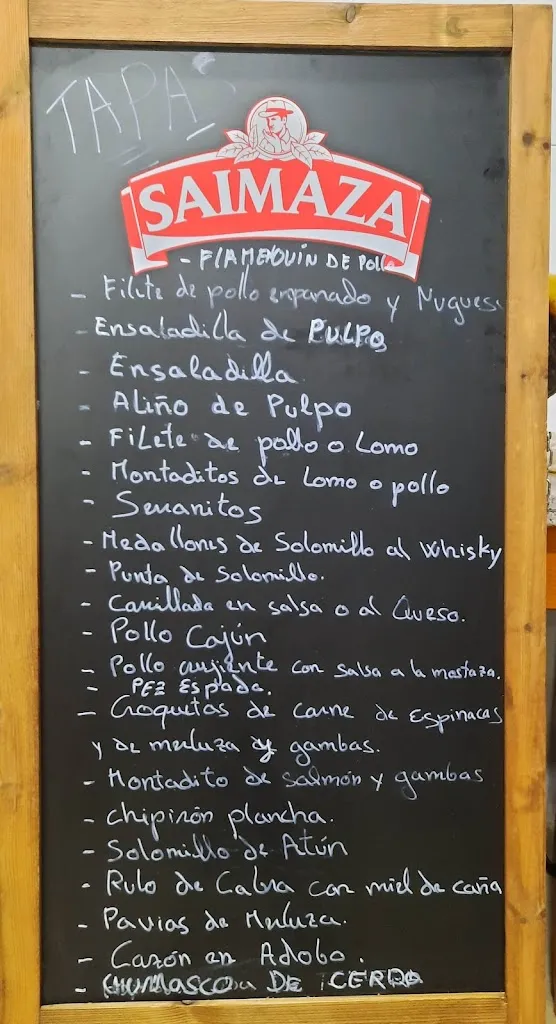 TAPAS
SAIMAZA
- FLAMENQUIN DE Pollo
- Filete de pollo empanado y Nugues
- Ensaladilla de PULPO
- Ensaladilla
- Aliño de Pulpo
- Filete de pollo o Lomo
- Montaditos de Lomo o pollo
- Serranitos
- Medallones de Solomillo al Whisky
- Punta de Solomillo.
- Carrillada en salsa o al Queso.
- Pollo Cajún
- Pollo crujiente con salsa a la mostaza.
- PEZ Espada.
- Croquetas de carne de Espinacas
y de merluza y gambas.
- Montadito de Salmón y gambas
- chipirón plancha.
- Solomillo de Atún
- Rulo de Cabra con miel de caña
- Pavias de Merluza.
- Cazón en Adobo.
- CHURRASCO DE CERDO